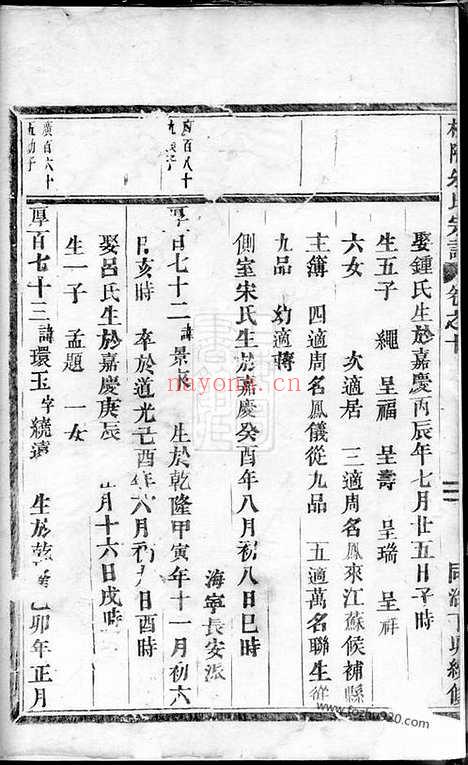 氏宗譜 卷之十
娶鍾氏生於嘉慶丙辰年七月廿五日子時
生五子 繩 呈福 呈壽 呈瑞 呈祥
六女 次適居 三適周名鳳來江蘇候補縣
主簿 四適周名鳳儀從九品 五適萬名聯生從
九品 幼適蔣
側室宋氏生於嘉慶癸酉年八月初八日巳時
海寧長安派
百七十二 諱景來 生於乾隆甲寅年十一月初六
亥時 卒於道光己酉年六月初九日酉時
娶呂氏生於嘉慶庚辰 月十六日戌時
生一子 孟題 一女
厚百六十
九 子
厚百七十三 諱環玉 字繞遠 生於乾隆乙卯年正月
nayong.cc
www.fozhu920.com